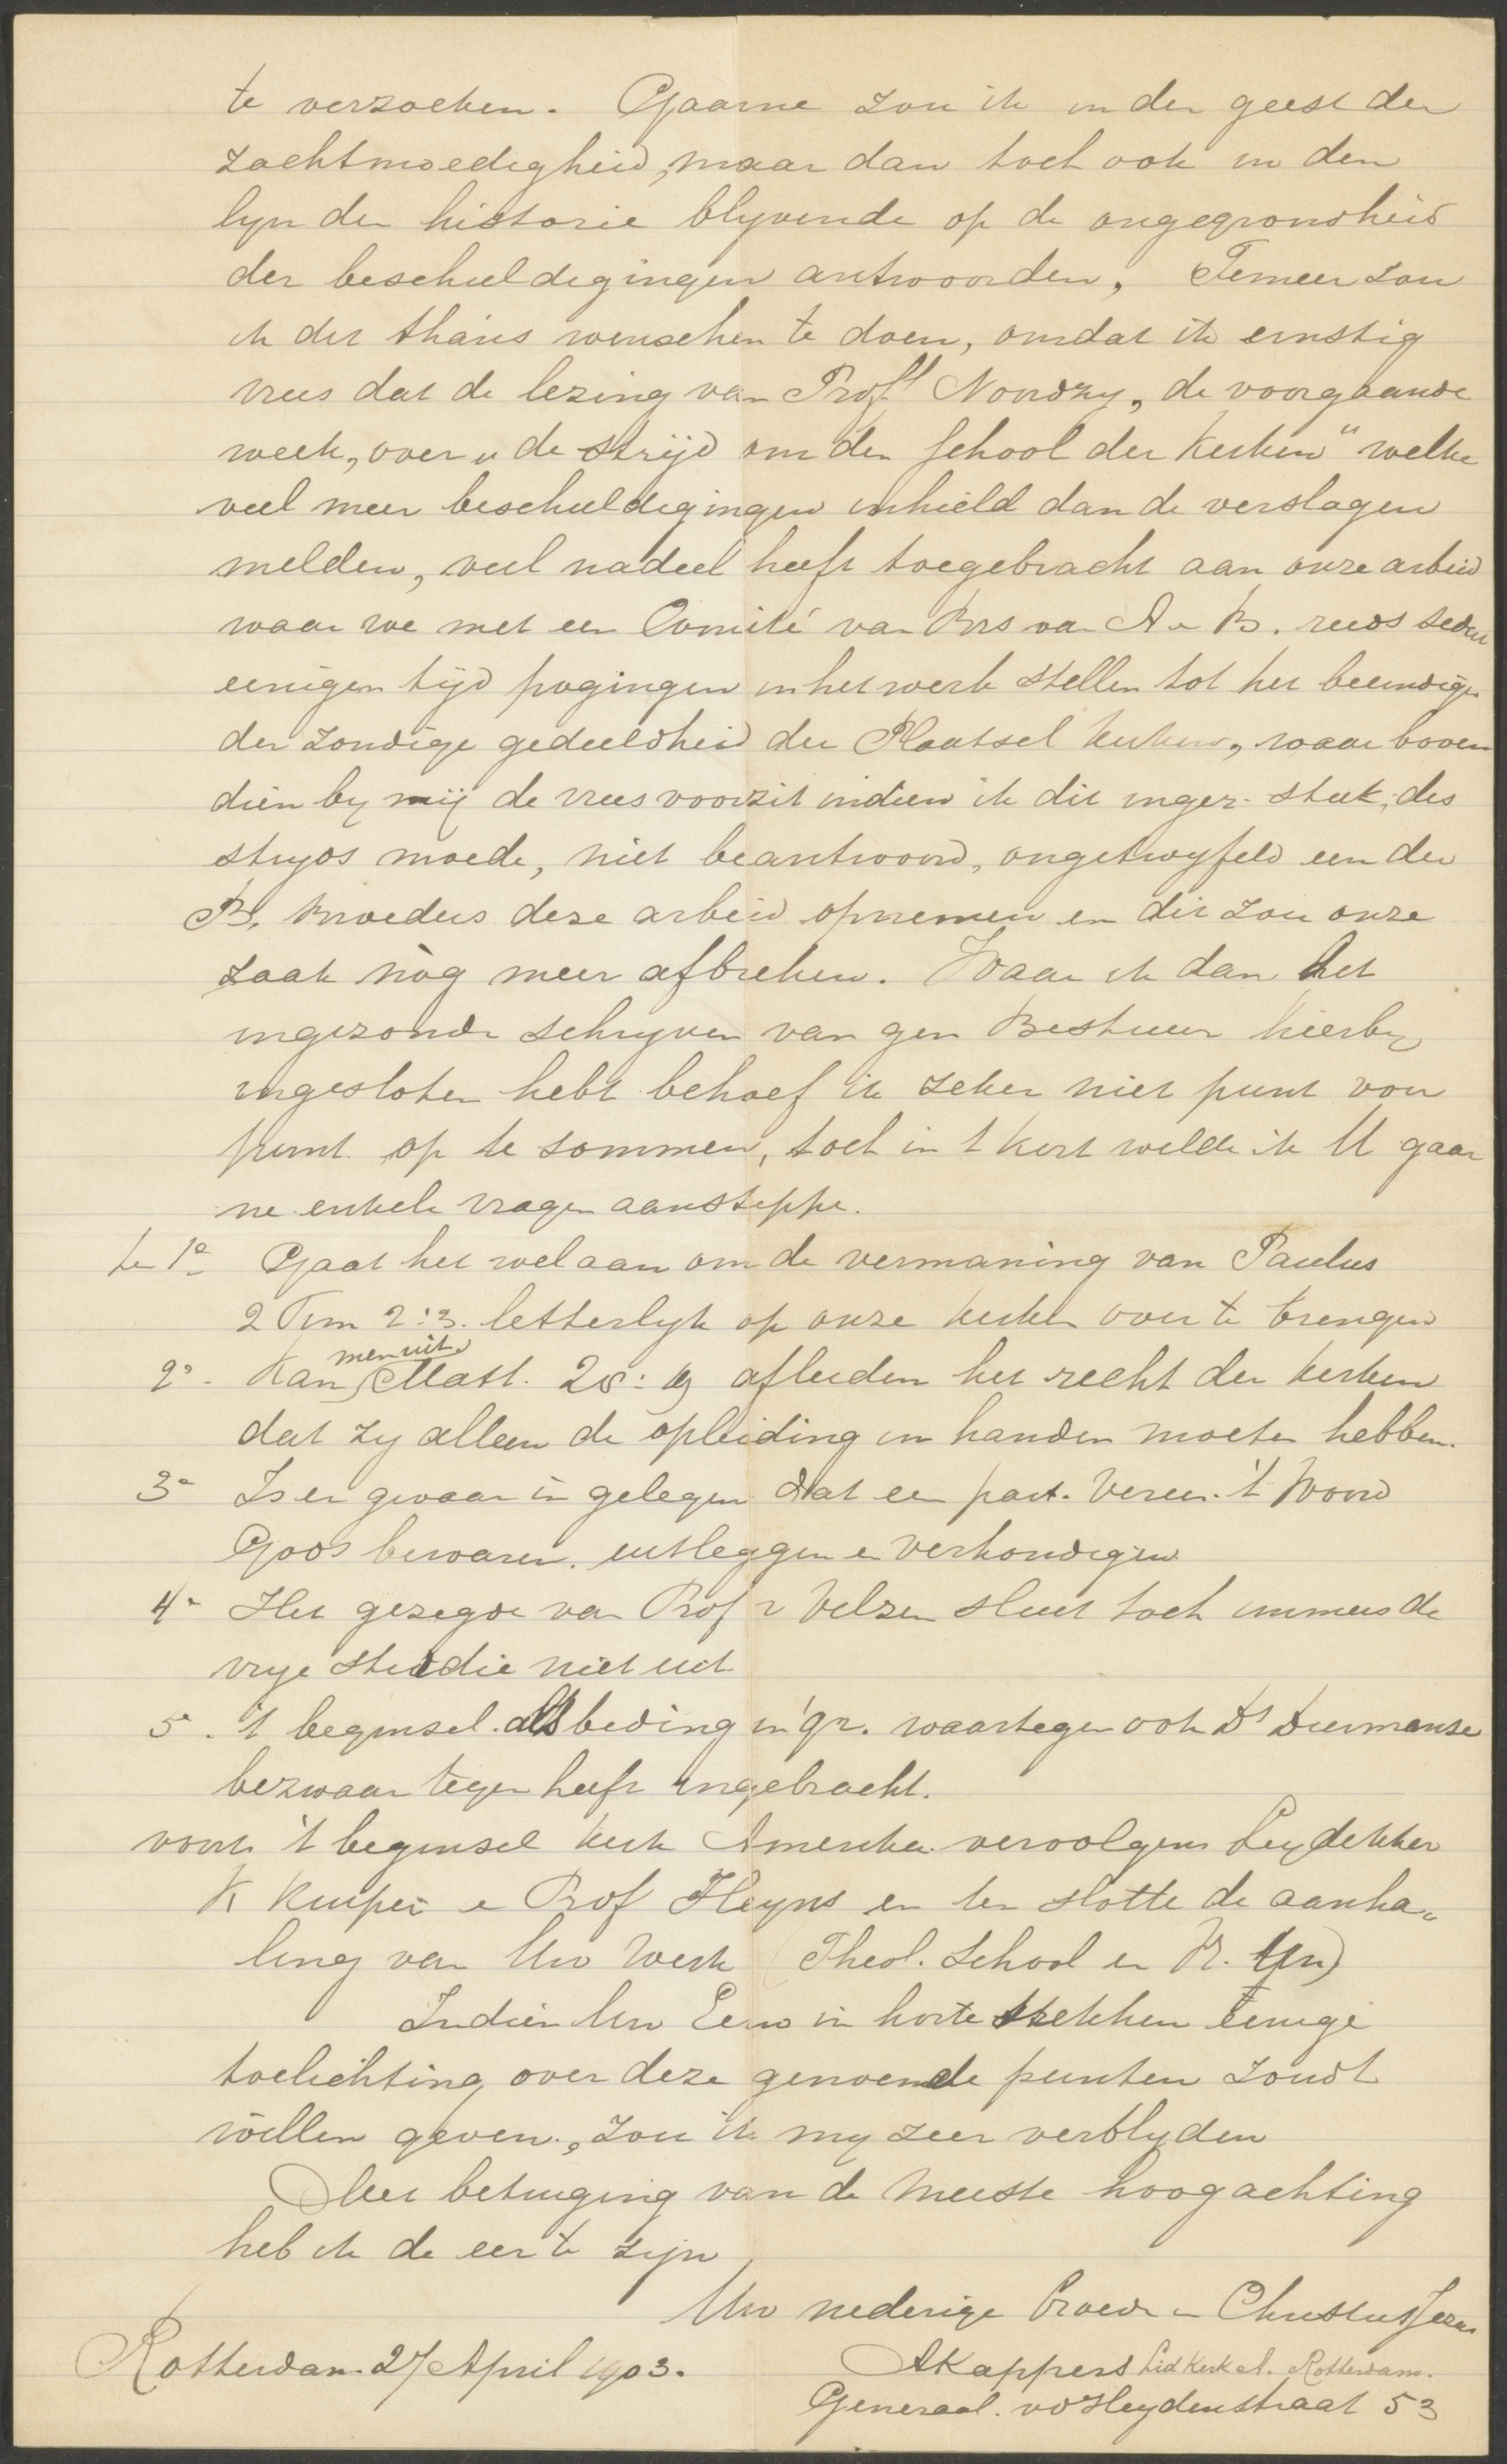 te verzoeken. Gaarne zou ik in den geest der
zachtmoedigheid, maar dan toch ook in den
lyn der historie blyvende op de ongegrondheid
der beschuldigingen antwoorden, Temeer zou
ik dit thans wenschen te doen, omdat ik ernstig
vrees dat de lezing van Prof Noordzy, de voorgaande
week, over „de strijd om den School der Kerken" welke
veel meer beschuldigingen inhield dan de verslagen
melden, veel nadeel heeft toegebracht aan onze arbeid
waar we met een Comité van Brs van A en B. reeds sedert
eenigen tijd pogingen in het werk stellen tot het beeindigen
der zondige gedeeldheid der Plaatsel Kerken, waar boven
dien by mij de vrees voorzit indien ik dit ingez. stuk, des
stryds moede, niet beantwoord, ongetwyfeld een der
B. broeders deze arbeid opnemen en dit zou onze
zaak nòg meer afbreken. Waar ik dan het
ingezonde schryven van gen Bestuur hierby
ingesloten hebt behoef ik zeker niet punt voor
punt op te sommen, toch in 't kort wilde ik U gaar
ne enkele vragen aanstippe.
te 1e Gaat het wel aan om de vermaning van Paulus
2 Tim 2:3. letterlyk op onze kerken over te brengen
2e. Kan men uit Matt. 28:19 afleiden het recht der kerken
dat zy alleen de opleiding in handen moeten hebben.
3e Is er gevaar in gelegen dat een part. Vereen. 't Woord
Gods bewaren. uitleggen en verkondigen
4e Het gezegde van Prof v Velzen sluit toch immers de
vrye studie niet uit
5e. 't beginsel als beding in gr. waartegen ook Ds
bezwaar tegen heeft ingebracht.
voorts 't beginsel kerk Amerika. vervolgens Leydekker
K Kuiper en Prof Heyns en ten slotte de aanha-
ling van Uw Werk (Theol. School en Vr. Un)
Indien Uw Eerw in korte trekken eenige
toelichting over deze genoemde punten zoudt
willen geven, zou ik my zeer verblyden
Met betuiging van de meeste hoogachting
heb ik de eer te zijn
Uw nederige broeder in Christus Jezus
Rotterdam 27 April 1903.
A Kappers Lid Kerk A. Rotterdam.
Generaal. vd Heydenstraat 53